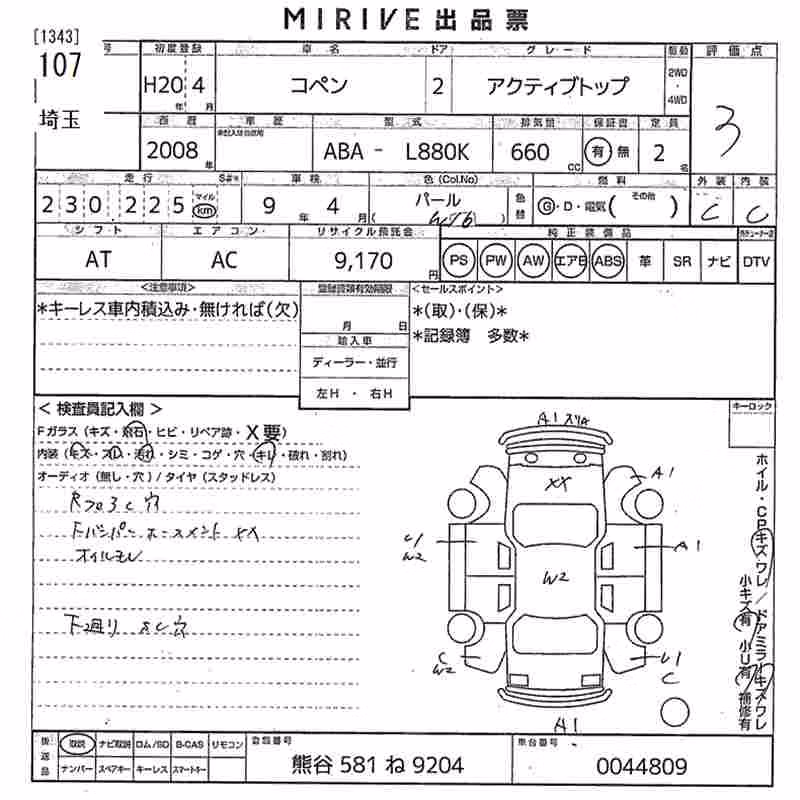 MIRIVE 出品票
[1343]
107
埼玉
号 初度登録 車名 ドア グレード 駆動 評価点
H20 4 コペン 2 アクティブトップ 2WD ・ 4WD 3
年 月
西暦 車歴 型式 排気量 保証書 定員
2008 年 ABA - L880K 660 CC 有 無 2 名
走行 S#* 車検 色 (Col.No) 燃料 外装 内装
230,225 マイル km 9 年 4 月 パール ( W16 ) 色替 G・D・電気( その他 ) C C
シフト エアコン リサイクル預託金 純正装備品
AT AC 9,170 円 PS PW AW エアB ABS 革 SR ナビ DTV
<注意事項> 登録書類有効期限 <セールスポイント>
*キーレス車内積込み・無ければ(欠) 月 日 *(取)・(保)*
輸入車 *記録簿 多数*
ディーラー・並行
左H ・ 右H
< 検査員記入欄 > キーロック
Fガラス (キズ・飛石・ヒビ・リペア跡・X要)
内装 (キズ・スレ・汚れ・シミ・コゲ・穴・キレ・破れ・割れ)
オーディオ (無し・穴) / タイヤ (スタッドレス)
Rフロ3C穴
Fバンパーホースメント XX
オイルモレ
下廻り SC穴
A1 スリキ
XX
A1
U1
W2
A1
W2
C
W2
U1
C
A1
ホイル・CPキズワレ / ドアミラーキズワレ
小キズ有 小U有 補修有
後送品 取説 ナビ取説 ロム/SD B-CAS リモコン 登録番号 車台番号
ナンバー スペアキー キーレス スマートキー 熊谷 581 ね 9204 0044809